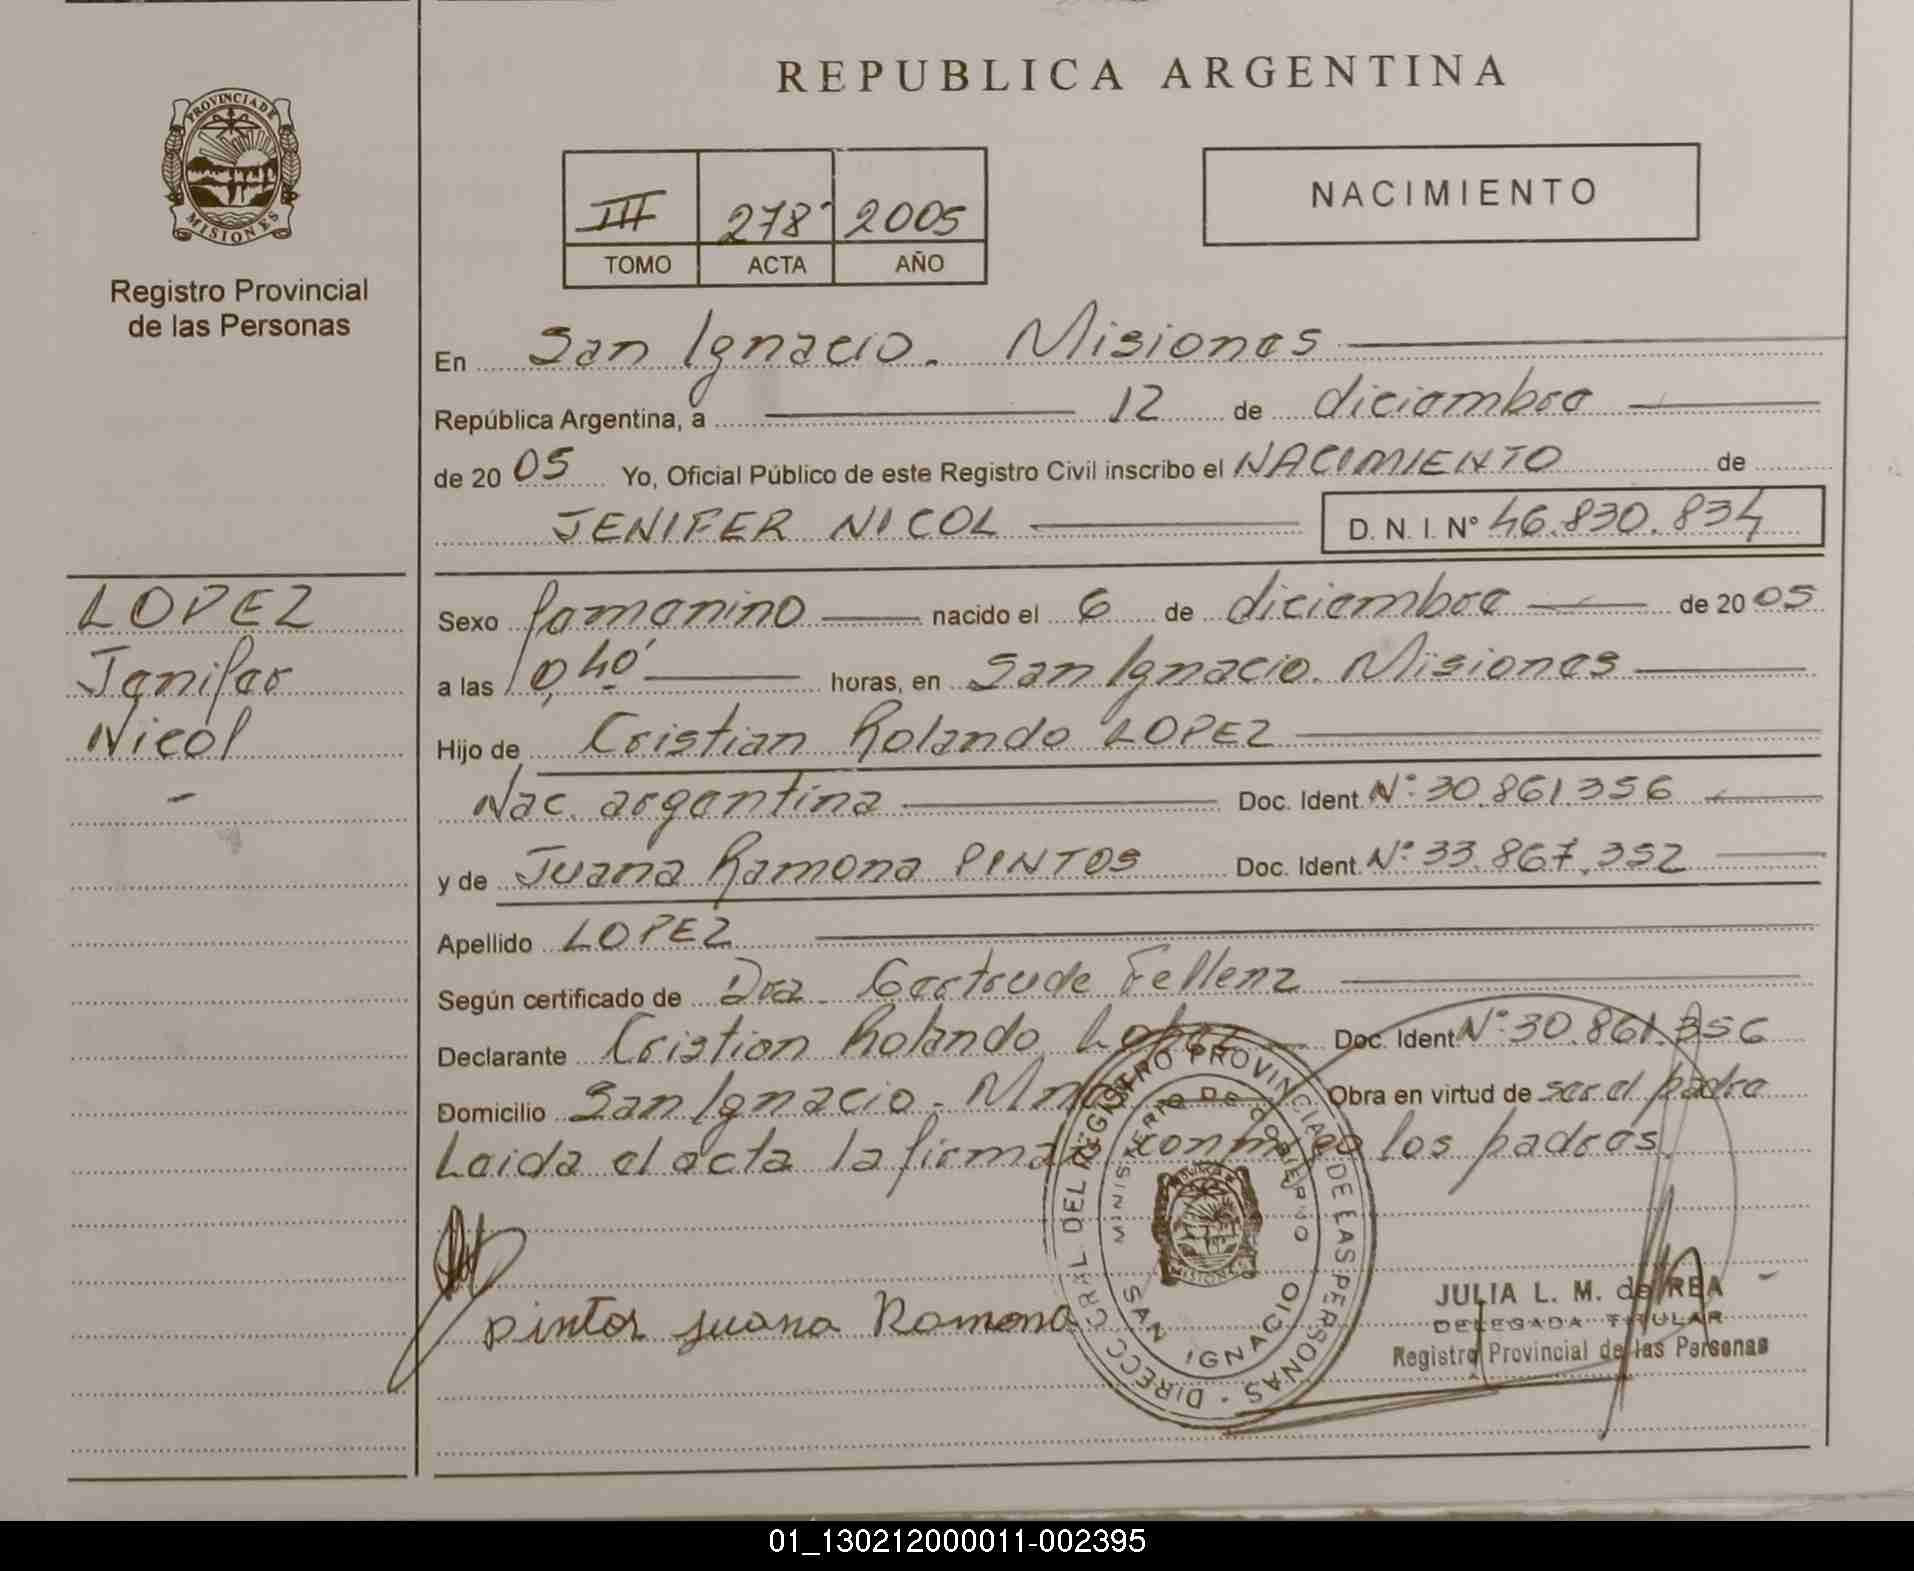 REPUBLICA ARGENTINA
PROVINCIA DE
MISIONES
Registro Provincial
de las Personas
III 278 2005
TOMO ACTA AÑO
NACIMIENTO
En San Ignacio. Misiones
República Argentina, a 12 de diciembre
de 20 05 Yo, Oficial Público de este Registro Civil inscribo el NACIMIENTO de
JENIFER NICOL D. N. I. Nº 46.830.834
LOPEZ
Jenifer
Nicol
-
Sexo femenino nacido el 6 de diciembre de 20 05
a las 0,40' horas, en San Ignacio. Misiones
Hijo de Cristian Rolando LOPEZ
Nac. argentina Doc. Ident. Nº 30.861.356
y de Juana Ramona PINTOS Doc. Ident. Nº 33.867.352
Apellido LOPEZ
Según certificado de Dra. Gertrude Fellenz
Declarante Cristian Rolando Lopez Doc. Ident Nº 30.861.356
Domicilio San Ignacio. Mnes Obra en virtud de ser el padre
Leida el acta la firman conmigo los padres.
pintos juana Ramona
DIRECC GRAL DEL REGISTRO PROVINCIAL DE LAS PERSONAS -
MINISTERIO DE GOBIERNO
SAN IGNACIO
JULIA L. M. de REA
DELEGADA TITULAR
Registro Provincial de las Personas
01_130212000011-002395